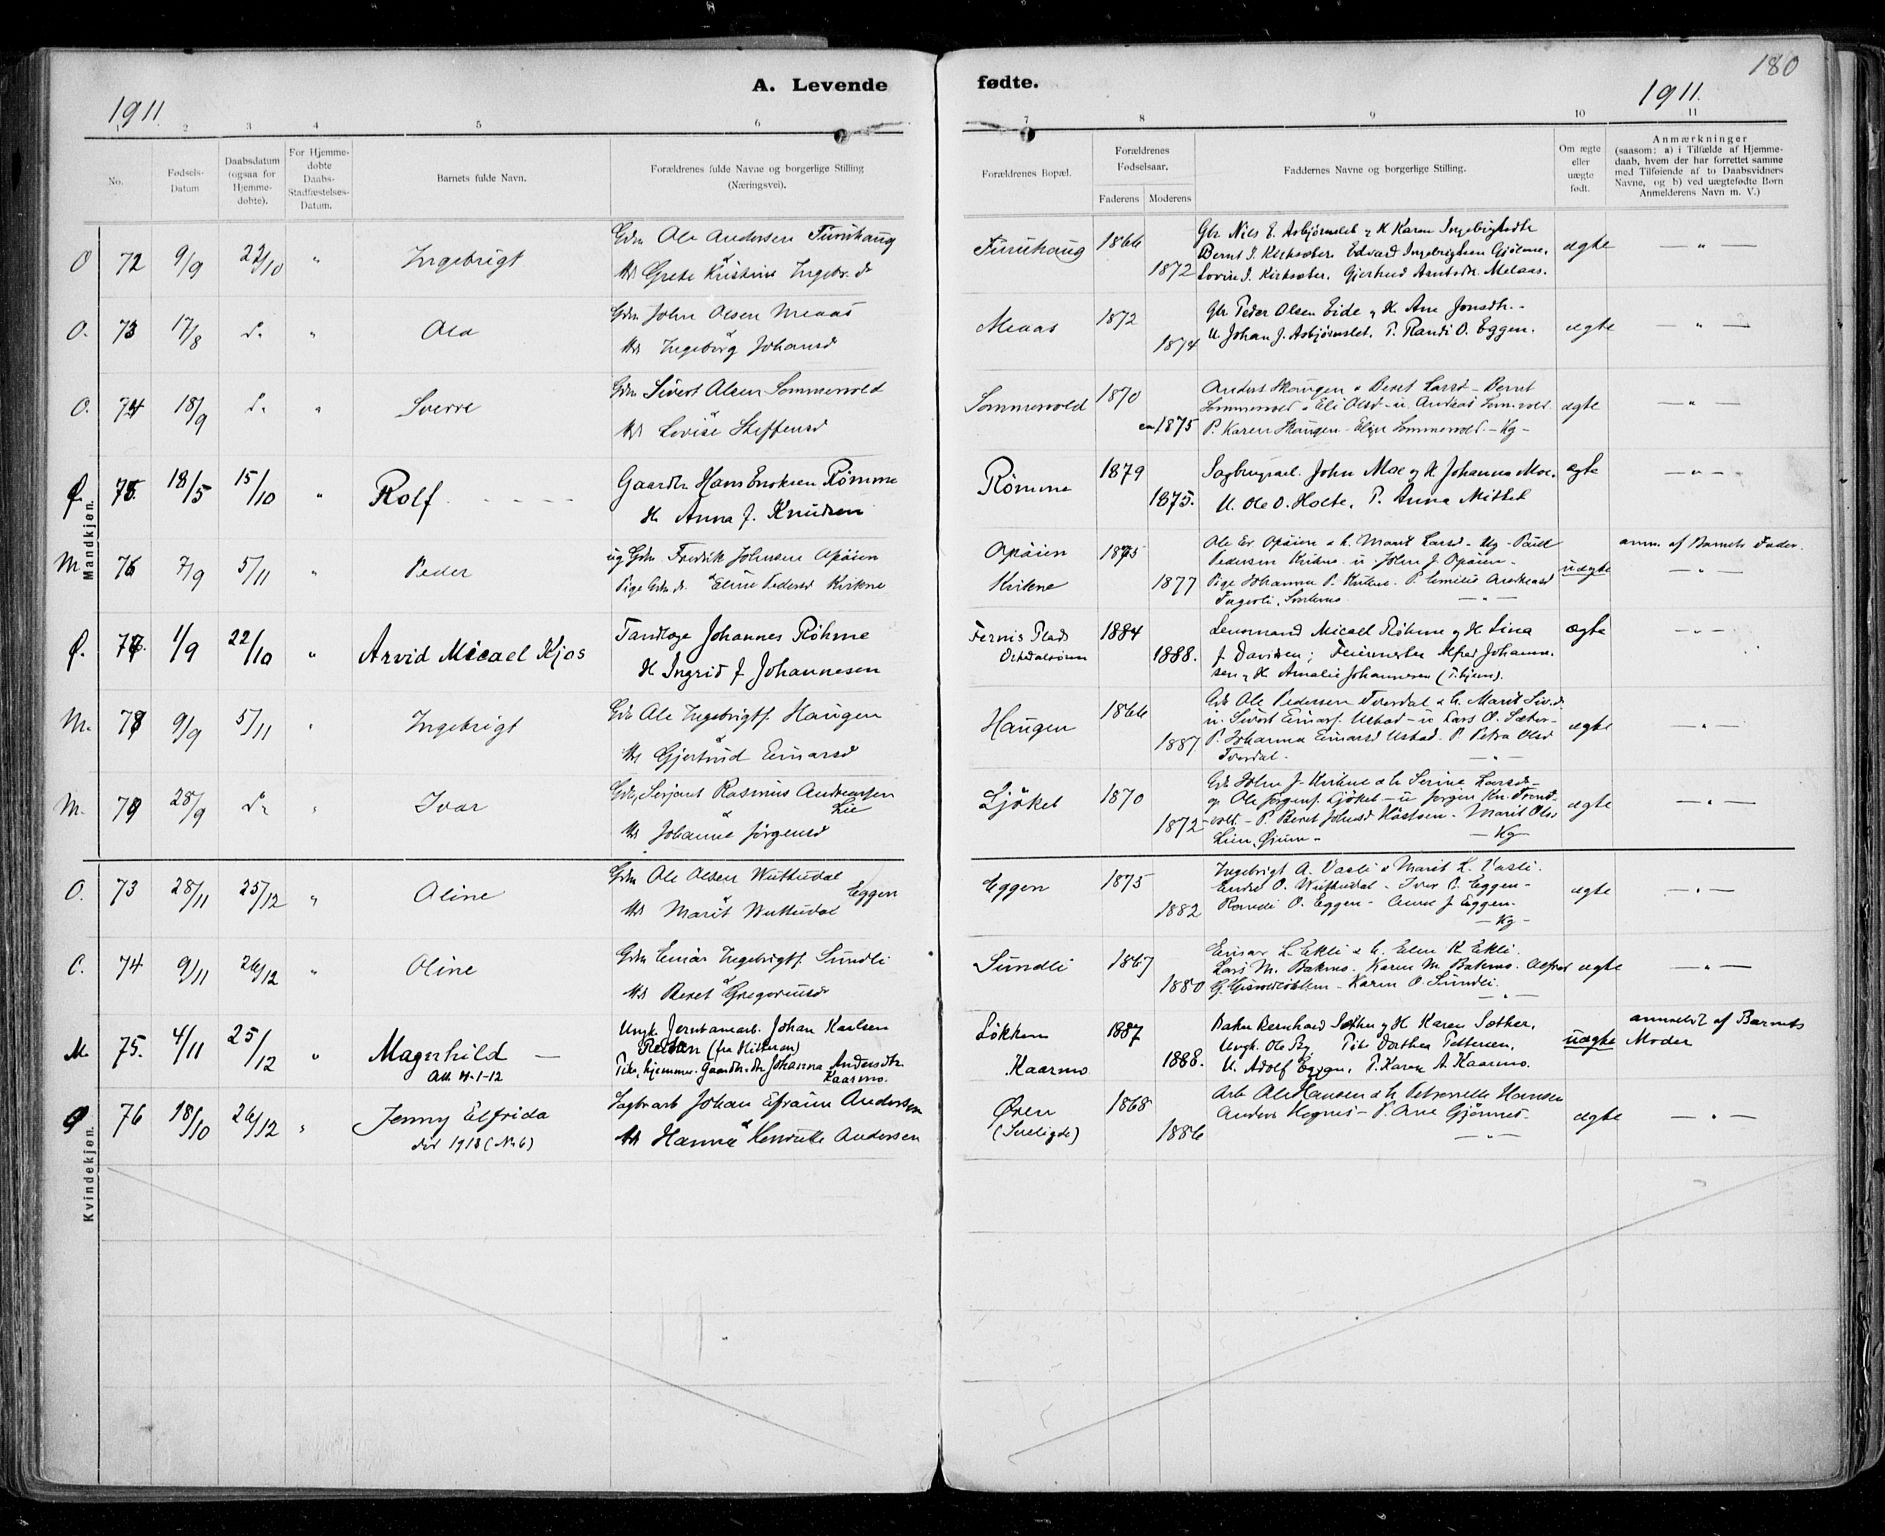 180
A. Levende fødte.
1911.
1911.
1 2 3 4 5 6 7 8 9 10 11
No.
Fødsels-Datum
Daabsdatum (ogsaa for Hjemme-døbte).
For Hjemme-døbte Daabs-Stadfæstelses-Datum.
Barnets fulde Navn.
Forældrenes fulde Navne og borgerlige Stilling (Næringsvei).
Forældrenes Bopæl.
Forældrenes Fødselsaar.
Faderens
Moderens
Faddernes Navne og borgerlige Stilling.
Om ægte eller uægte født.
Anmærkninger
(saasom: a) i Tilfælde af Hjemme-daab, hvem der har forrettet samme med Tilføiende af to Daabsvidners Navne, og b) ved uægtefødte Børn Anmelderens Navn m. V.)
Mandkjøn.
O 72 9/9 22/10 " Ingebrigt
Gdm Ole Andersen Furuhaug
& Grete Kristine Ingebr. dr
Furuhaug 1866 1872
Gbr Nils E. Asbjørnslet & K Karen Ingebrigtsdtr
Bernt J. Kirksæter. Edvard Ingebrigtsen Gjølme.
Lovise J. Kirksæter. Gjertrud Arntsdr. Melaas.
ægte — " —
O. 73 17/8 d. " Ola
Gdm John Olsen Moaas
& Ingeborg Johansd
Moaas 1872 1874
Gbr Peder Olsen Eide & K. Ane Jonsdtr. -
U. Johan J. Asbjørnslet. P. Randi O. Eggen.
ægte — " —
O. 74 18/9 d. " Sverre
Gdm Sivert Olsen Sommervold
& Lovise Steffensd
Sommervold 1870 1875
Anders Skaugen & Beret Larsd - Bernt
Sommervold & Eli Olsd - u. Andreas Sommervold
P. Karen Skaugen - Elen Sommervold. - Kg -
ægte — " —
Ø. 75 18/5 15/10 " Rolf
Gaardbr Hans Enoksen Rømme
H. Anna J. Knudsen
Rømme 1879 1875.
Sagbrugsarb. John Moe og H Johanna Moe.
U. Ole O. Holte. P. Anna Mittet
ægte — " —
M 76 7/9 5/11 " Peder
ug Gdm Fredrik Johnsen Opøien
Pige Gdm dr. Eline Pedersd Kirkne
Opøien 1875 1877
Ole Er. Opøien & h. Marit Larsd - Ug - Paul
Pedersen - u. John J. Opøien -
Pige Johanna P. P. Emilie Andreasd
Fagerli,
uægte
anm. af Barnets Fader.
— " —
Ø. 77 1/9 22/10 " Arvid Micael Kjos
Tandlæge Johannes Røhme
H Ingrid J Johannesen
Fernis Plads
Orkdalsøren 1884 1888.
Lensmand Micael Røhme og H Lina
J. Davidsen; Feiermester Alfred Johanne-
sen & H Amalie Johannesen (T.hjem).
ægte — " —
M. 78 9/9 5/11 " Ingebrigt
Gdb Ole Ingebrigtf. Haugen
& Gjertrud Einarsd
Haugen 1866 1887
Gdb Ole Pedersen Tverdal & h. Marit Siv.d
u. Sivert Einarf. Ustad - u Lars O. Sæter -
P. Johanna Einarsd Ustad. P. Petra Olsd
Tverdal. — " —
ægte — " —
M. 79 28/9 d. " Ivar
Gdb, Serjant Rasmus Andreassen Lie
& Johanne Jørgensd
Ljøkel 1870 1872
Gdb John J. & h. Serine Larsd -
og Ole Jørgenf. Ljøkel - u Jørgen Kn.
- P. Beret Johnsd - Marit Olsd
Lien, — Kg —
ægte — " —
Kvindekjøn.
O. 73 28/11 25/12 " Oline
Gdm Ole Olsen Wuttudal Eggen
& Marit Wuttudal
Eggen 1875 1882
Ingebrigt A. Vasli & Marit L. Vasli.
Endre O. Wuttudal - Iver O. Eggen -
Randi O. Eggen - Anne J. Eggen.
— Kg —
ægte — " —
O. 74 9/11 26/12 " Oline
Gdm Einar Ingebrigtf. Sundli
& Beret Gregoriusdr
Sundli 1867 1880
Einar L. Ekli & h. Elen K. Ekli
Lars M. Bakmo. Karen M. Bakmo. Alfred
G. - Karen O. Sundli.
— " —
ægte — " —
M 75. 4/11 25/12 " Magnhild —
Att 4-1-12
Ungk. Jernbanearb. Johan Karlsen
(fra Hitteren)
Pike, hjemme. Gaardbr. dr Johanna Andersdtr.
Kaarmo.
Løkken
Kaarmo 1887 1888.
Baker Bernhard Sæther og H Karen Sæther,
Ungk. Ole By, Pike Dorthea Pettersen,
U. Adolf Eggen, P. Karen A. Kaarmo.
uægte
anmeldt af Barnets
Moder
Ø 76 18/10 26/12 " Jenny Elfrida
død 1918 (No 6)
Sagbr.arb Johan Efraim Andersen
& Hanna Henriette Andersen
Øren
1868 1886
Arb Ole Hansen & h. Petronelle Hansen
Anders Hognes - P. Ane Gjønnes -
— " —
ægte — " —